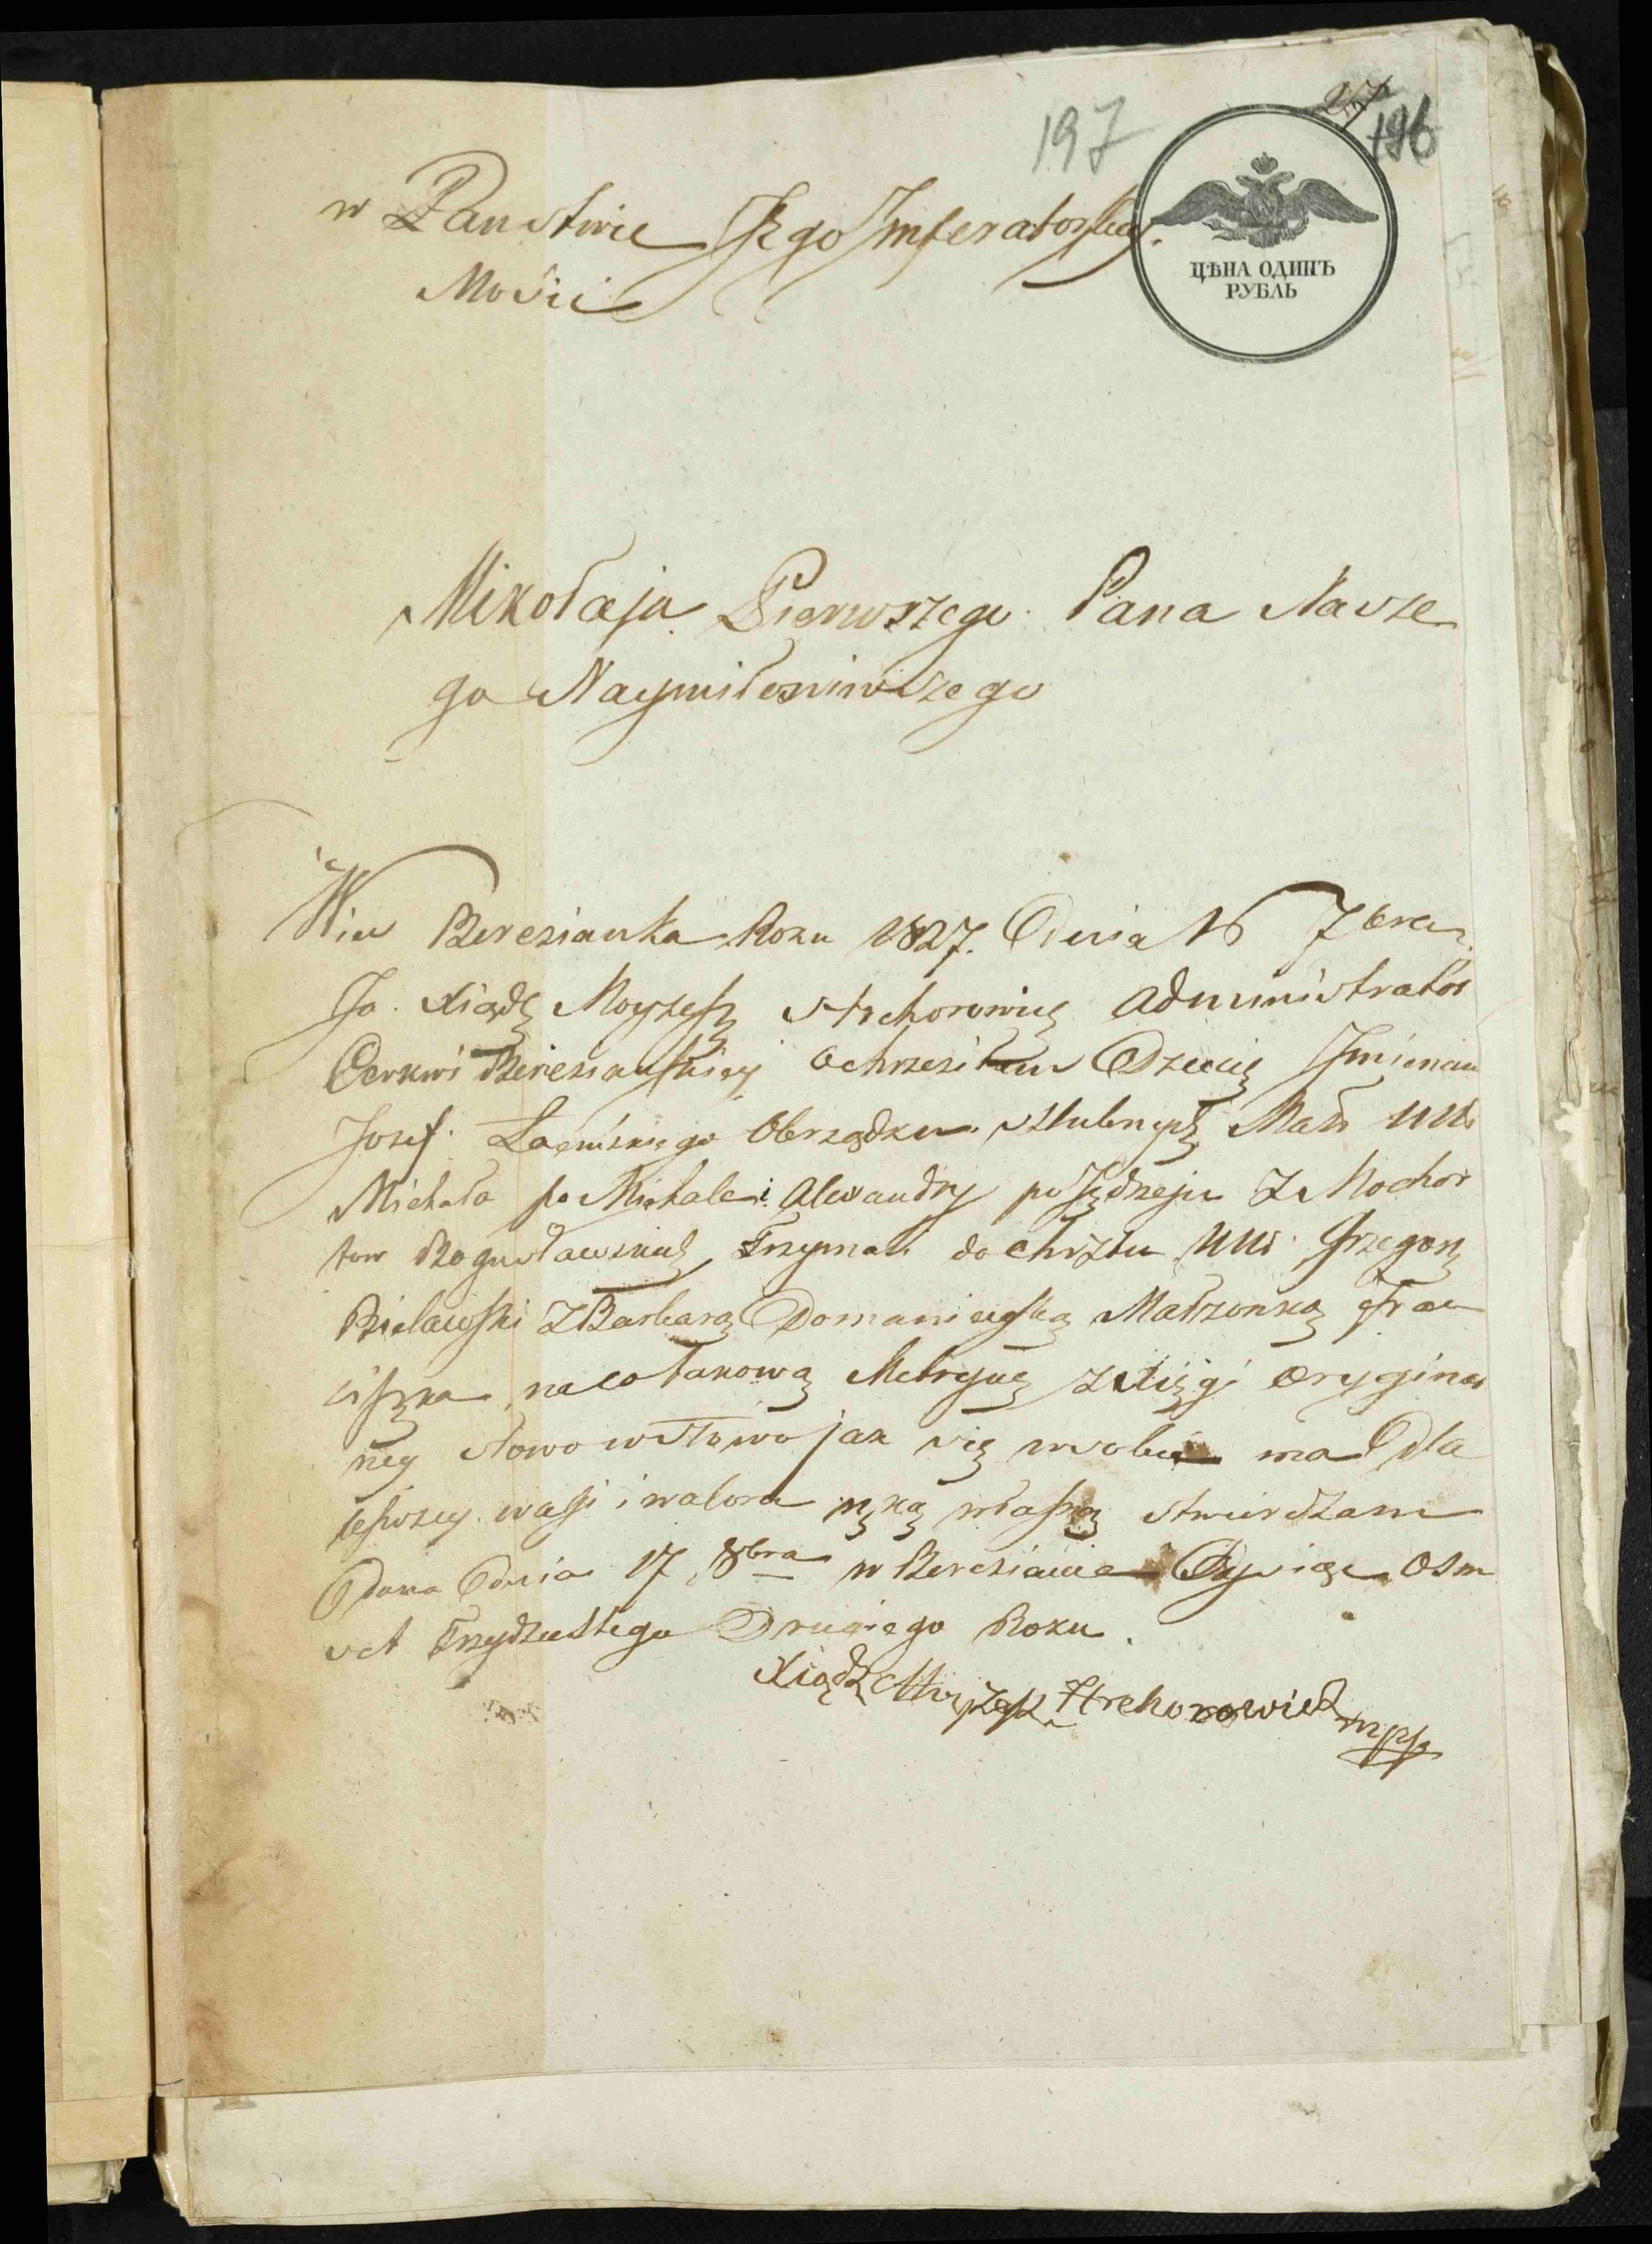 197
196
w Panstwie Jego Imperatorskiey
Mości
ЦѢНА ОДИНЪ
РУБЛЬ
Mikołaja Pierwszego Pana Nasze
go Naymiłosciwszego
Wieś Berezianka Roku 1827. Dnia 16 7bra
Ja Xiądz Moyzesz Strehorowicz Administrator
Cerkwi Berezianskiey ochrzciłem Dziecię Imieniem
Josef Łacińskiego Obrządku szlubnych Mał: WW
Michała po Michale i Alexandry po Jędrzeju z Mochor
tow Bogusławskich, Trzymali do chrztu WW Grzegorz
Bielawski z Barbarą Domaniewską Małżonką Fran
ciszka, na co takową Metrykę z xięgi orygina
ney słowo w słowo jak się w sobie ma Dla
lepszey wagi i waloru ręką własną stwierdzam
Dana Dnia 17 8bra w Bereziance Tysiąc osm
set Trzydziestego Drugiego Roku.
Xiądz Moyzesz Strehorowicz mpp